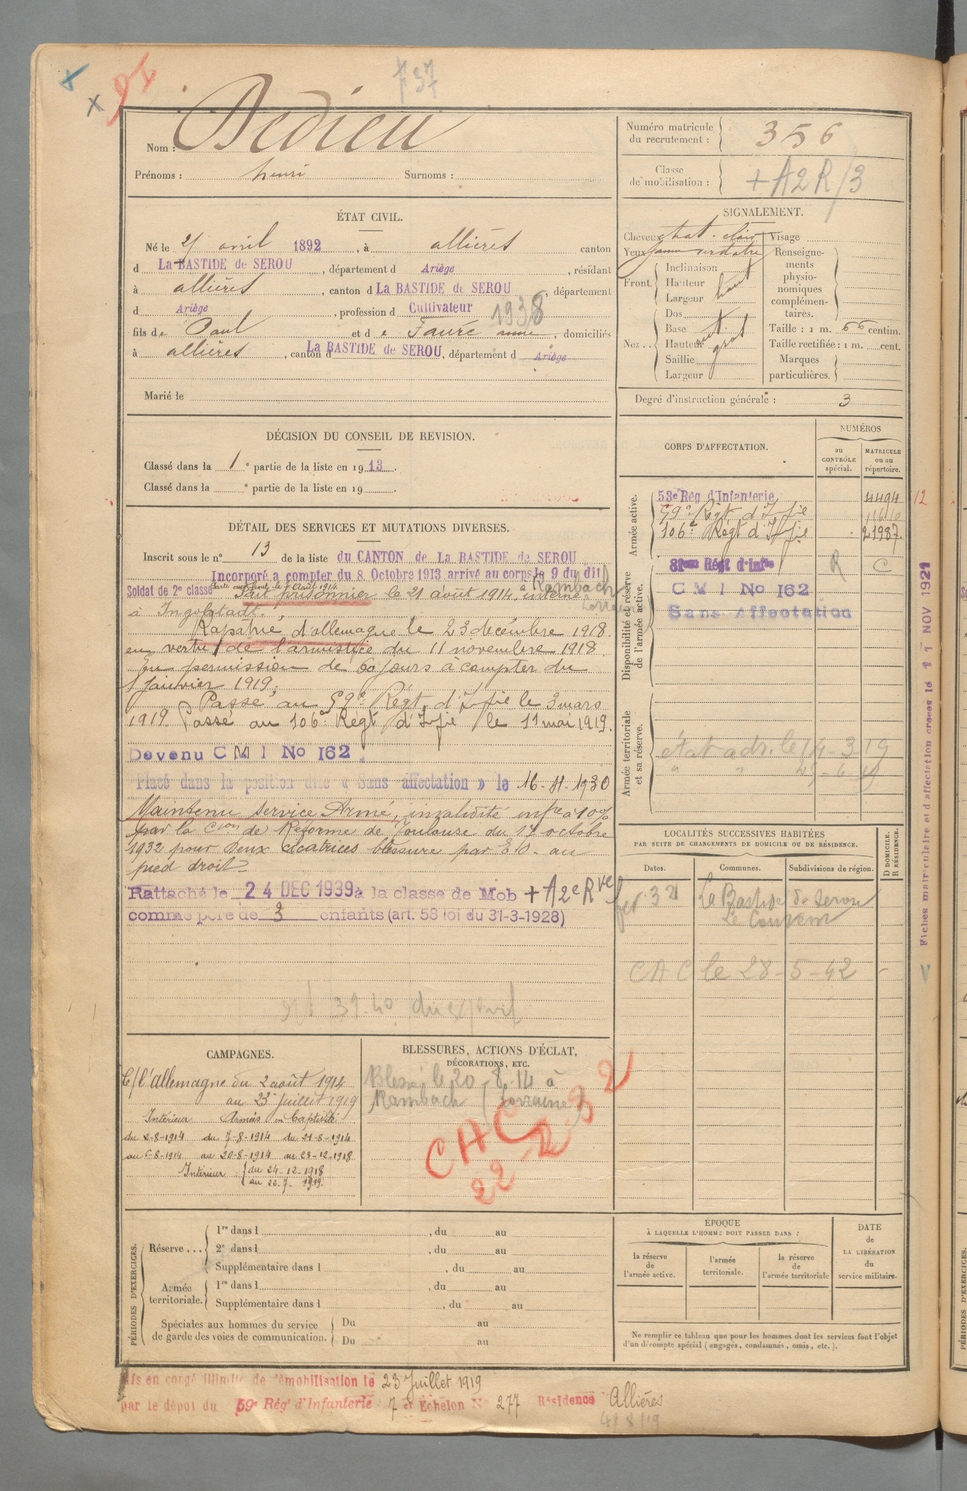 94
f 37
Nom : Dedieu
Prénoms : henri Surnoms :
Numéro matricule du recrutement : 356
Classe de mobilisation : + A2R/3
ÉTAT CIVIL.
Né le avril 1892, à allières canton
d La BASTIDE de SEROU, département d Ariège, résidant
à allières, canton d La BASTIDE de SEROU, département
d Ariège, profession d Cultivateur
1938
fils de Paul et de Faure anne, domiciliés
à allières, canton d La BASTIDE de SEROU, département d Ariège
Marié le
SIGNALEMENT.
Cheveux chat. clair Visage
Yeux jaune verdatre Renseignements physionomiques complémentaires.
Front. Inclinaison
Hauteur haut
Largeur
Nez.. Dos
Base
Hauteur
Saillie
Largeur
Taille : 1 m. 66 centim.
Taille rectifiée : 1 m. cent.
Marques particulières.
Degré d'instruction générale : 3
DÉCISION DU CONSEIL DE REVISION.
Classé dans la 1e partie de la liste en 1913.
Classé dans la e partie de la liste en 19 .
DÉTAIL DES SERVICES ET MUTATIONS DIVERSES.
Inscrit sous le n° 13 de la liste du CANTON de La BASTIDE de SEROU
Incorporé à compter du 8 Octobre 1913 arrivé au corps le 9 du dit
Soldat de 2e classe Fait prisonnier le 21 août 1914, à Rambach Lorraine interné
à Ingolstadt.
Rapatrié d'allemagne le 23 decembre 1918
en vertu de l'armistice du 11 novembre 1918.
En permission de 60 jours à compter du
1 Janvier 1919.
Passé au 59e Régt d'Infie le 3 mars
1919. Passé au 106e Régt d'Infie le 11 mai 1919.
Devenu C M I No 162
Placé dans la position dite « Sans affectation » le 16-11-1930
Maintenu service Armé, invalidité infre à 10%
par la Cion de Réforme de Toulouse du 13 octobre
1932 pour deux cicatrices blessure par B.O. au
pied droit
Rattaché le 24 DEC 1939 à la classe de Mob + A2e Rve
comme père de 3 enfants (art. 58 loi du 31-3-1928)
CORPS D'AFFECTATION.
NUMÉROS
AU CONTRÔLE spécial.
MATRICULE ou au répertoire.
Armée active.
53e Rég d'Infanterie 4494
59e Régt d'Infie
106e Régt d'Infie 21987
Disponibilité et réserve de l'armée active.
81eme Régt d'Infie R C
C M I No 162
Sans Affectation
Armée territoriale et sa réserve.
état adr. le 14-3 19
Fiches matriculaire et d'affectation créées le 11 NOV 1921
12
LOCALITÉS SUCCESSIVES HABITÉES
PAR SUITE DE CHANGEMENTS DE DOMICILE OU DE RÉSIDENCE.
Dates. Communes. Subdivisions de région. D DOMICILE. R RÉSIDENCE.
La Bastide de Serou
Le Couvent
CAC le 28-5-42
CAMPAGNES.
C/ l'allemagne du 2 août 1914
au 23 juillet 1919
Intérieur Armées en Captivité
du 2-8-1914 du 7-8-1914 du 21-8-1914
au 6-8-1914 au 20-8-1914 au 23-12-1918
Intérieur : du 24-12-1918
au 22-7-1919
BLESSURES, ACTIONS D'ÉCLAT, DÉCORATIONS, ETC.
Blessé le 20-8-14 à
Rambach (Lorraine)
CAC
PÉRIODES D'EXERCICES.
Réserve ... 1re dans l , du au
2e dans l , du au
Supplémentaire dans l , du au
Armée territoriale. 1re dans l , du au
Supplémentaire dans l , du au
Spéciales aux hommes du service de garde des voies de communication. Du au
Du au
ÉPOQUE
À LAQUELLE L'HOMME DOIT PASSER DANS :
la réserve de l'armée active.
l'armée territoriale.
la réserve de l'armée territoriale
DATE de LA LIBÉRATION du service militaire.
Ne remplir ce tableau que pour les hommes dont les services font l'objet
d'un décompte spécial (engagés, condamnés, omis, etc.).
Mis en congé illimité de démobilisation le 23 Juillet 1919
par le dépôt du 59e Rég' d'Infanterie 7e Échelon N° 277 Résidence Allières
PÉRIODES D'EXERCICES.